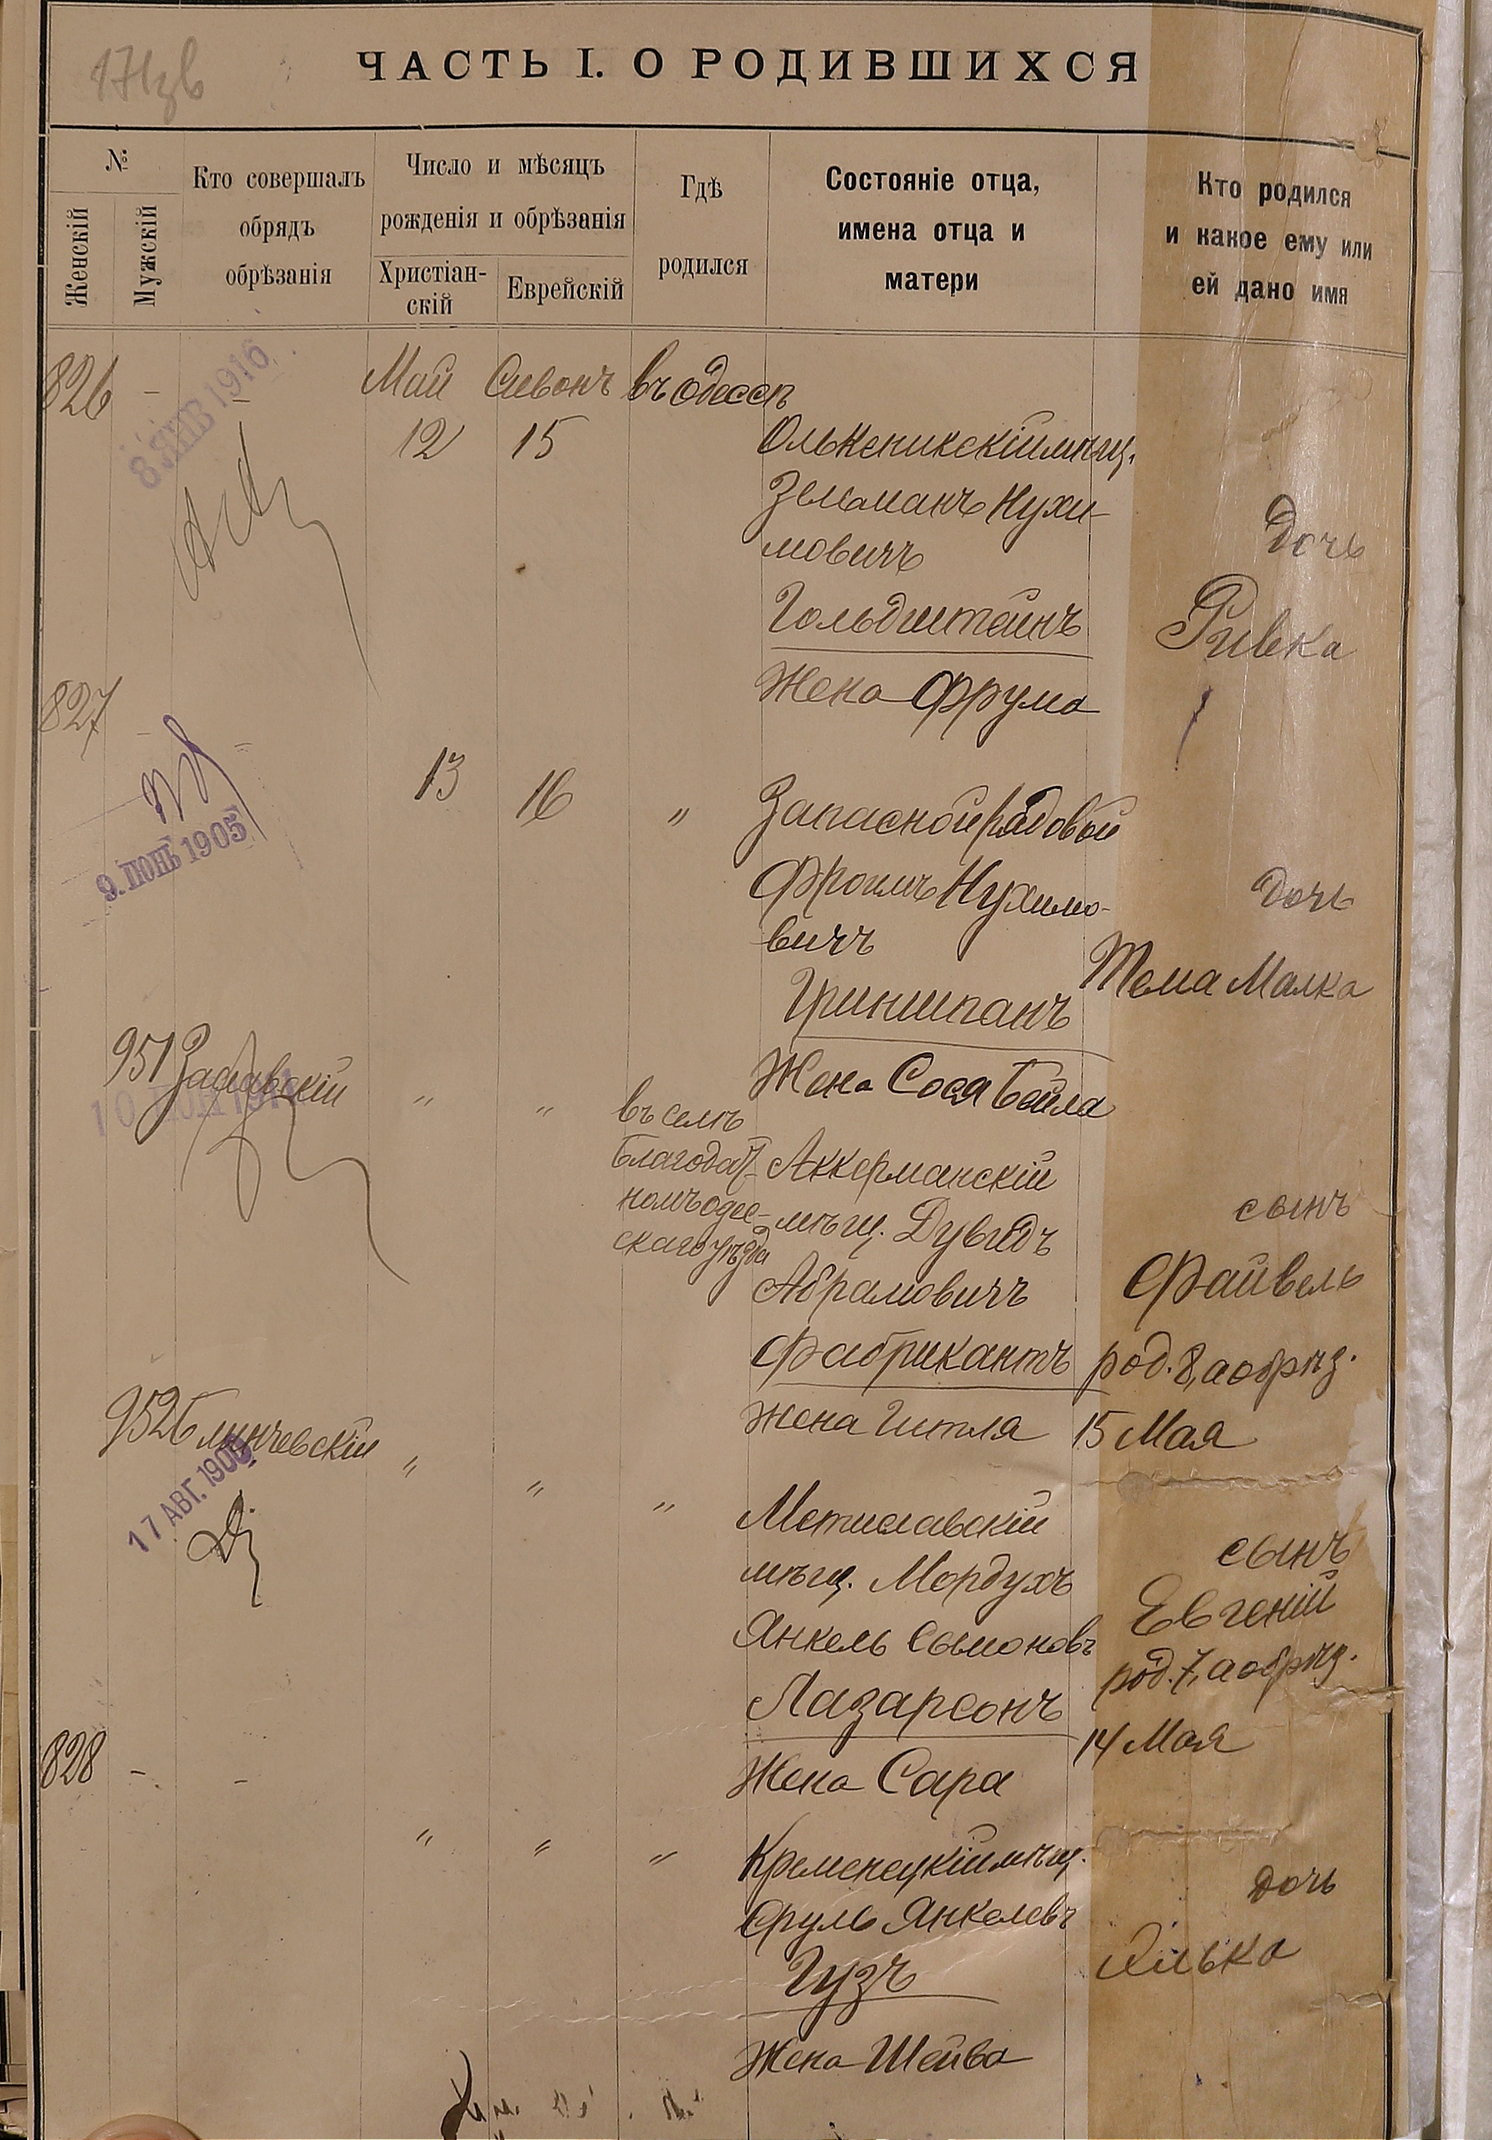 ЧАСТЬ I. О РОДИВШИХСЯ
№
Женскій
Мужскій
Кто совершалъ
обрядъ
обрѣзанія
Число и мѣсяцъ
рожденія и обрѣзанія
Христіан-
скій
Еврейскій
Гдѣ
родился
Состояніе отца,
имена отца и
матери
Кто родился
и какое ему или
ей дано имя
826 - - Май Сивонъ въ Одессѣ
8 ЯНВ 1916
12 15
Олькеникскій мѣщ.
Зельманъ Нухи-
мовичъ
Гольдштейнъ
Жена Фрума
Дочь
Ривка
827 - -
13 16 " Запасной рядовой
9. ІЮНЬ 1905
Фроимъ Нухимо-
вичъ
Гриншпанъ
Жена Сося Бейла
Дочь
Тема Малка
951 Заславскій " " въ селѣ
Благодат-
номъ Одес-
скаго уѣзда
Аккерманскій
мѣщ. Дувидъ
Абрамовичъ
Фабрикантъ
Жена Гитля
сынъ
Файвель
род. 8, а обрѣз.
15 Мая
952 Блинчевскій " " "
17 АВГ.
Мстиславскій
мѣщ. Мордухъ
Янкель Сымоновъ
Лазарсонъ
Жена Сара
сынъ
Евгеній
род. 7, а обрѣз.
14 Мая
828 - - " " "
Кременецкій мѣщ.
Сруль Янкелевъ
Гузъ
Жена Шейва
дочь